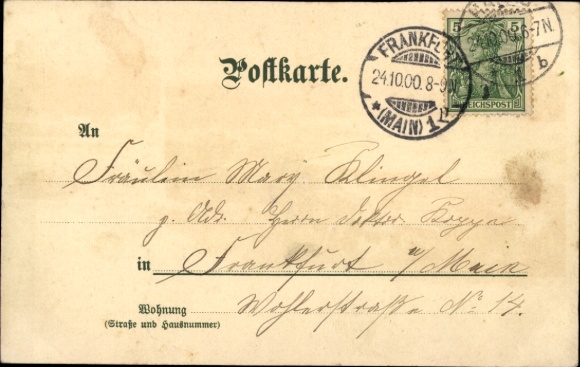 5 5
REICHSPOST
24.10.00. 6-7N.
b
FRANKFURT
24.10.00. 8-9N
* (MAIN) 1
Postkarte.
An
Fräulein Mary Klingel
p. Adr. Herrn Doktor
in Frankfurt a/Main
Wohnung Wohlerstraße No. 14.
(Straße und Hausnummer)